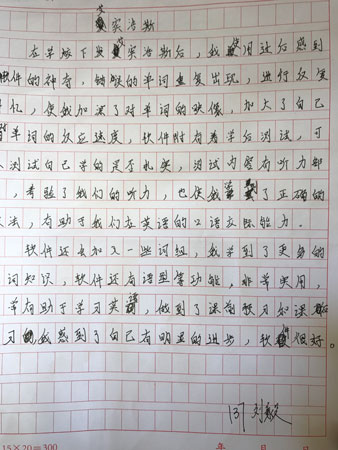 艾宾浩斯
在年级下载艾宾浩斯后，我使用过后感到
软件的神奇，错误的单词重复出现，进行反复
记忆，使我加深了对单词的映像，加大了自己
单词的反应速度，软件附有着学后测试，可
测试自己学的是否扎实，测试内容有听力部
，考验了我们的听力，也使我掌握了正确的
法，有助于我们在英语的口语交际能力。
软件还会加入一些词组，我学到了更多的
词知识，软件还有语型等功能，非常实用，
有助于学习英语，做到了课前预习和课后
习，我感到了自己有明显的进步，软件很好。
137 刘毅
15×20=300
年 月 日